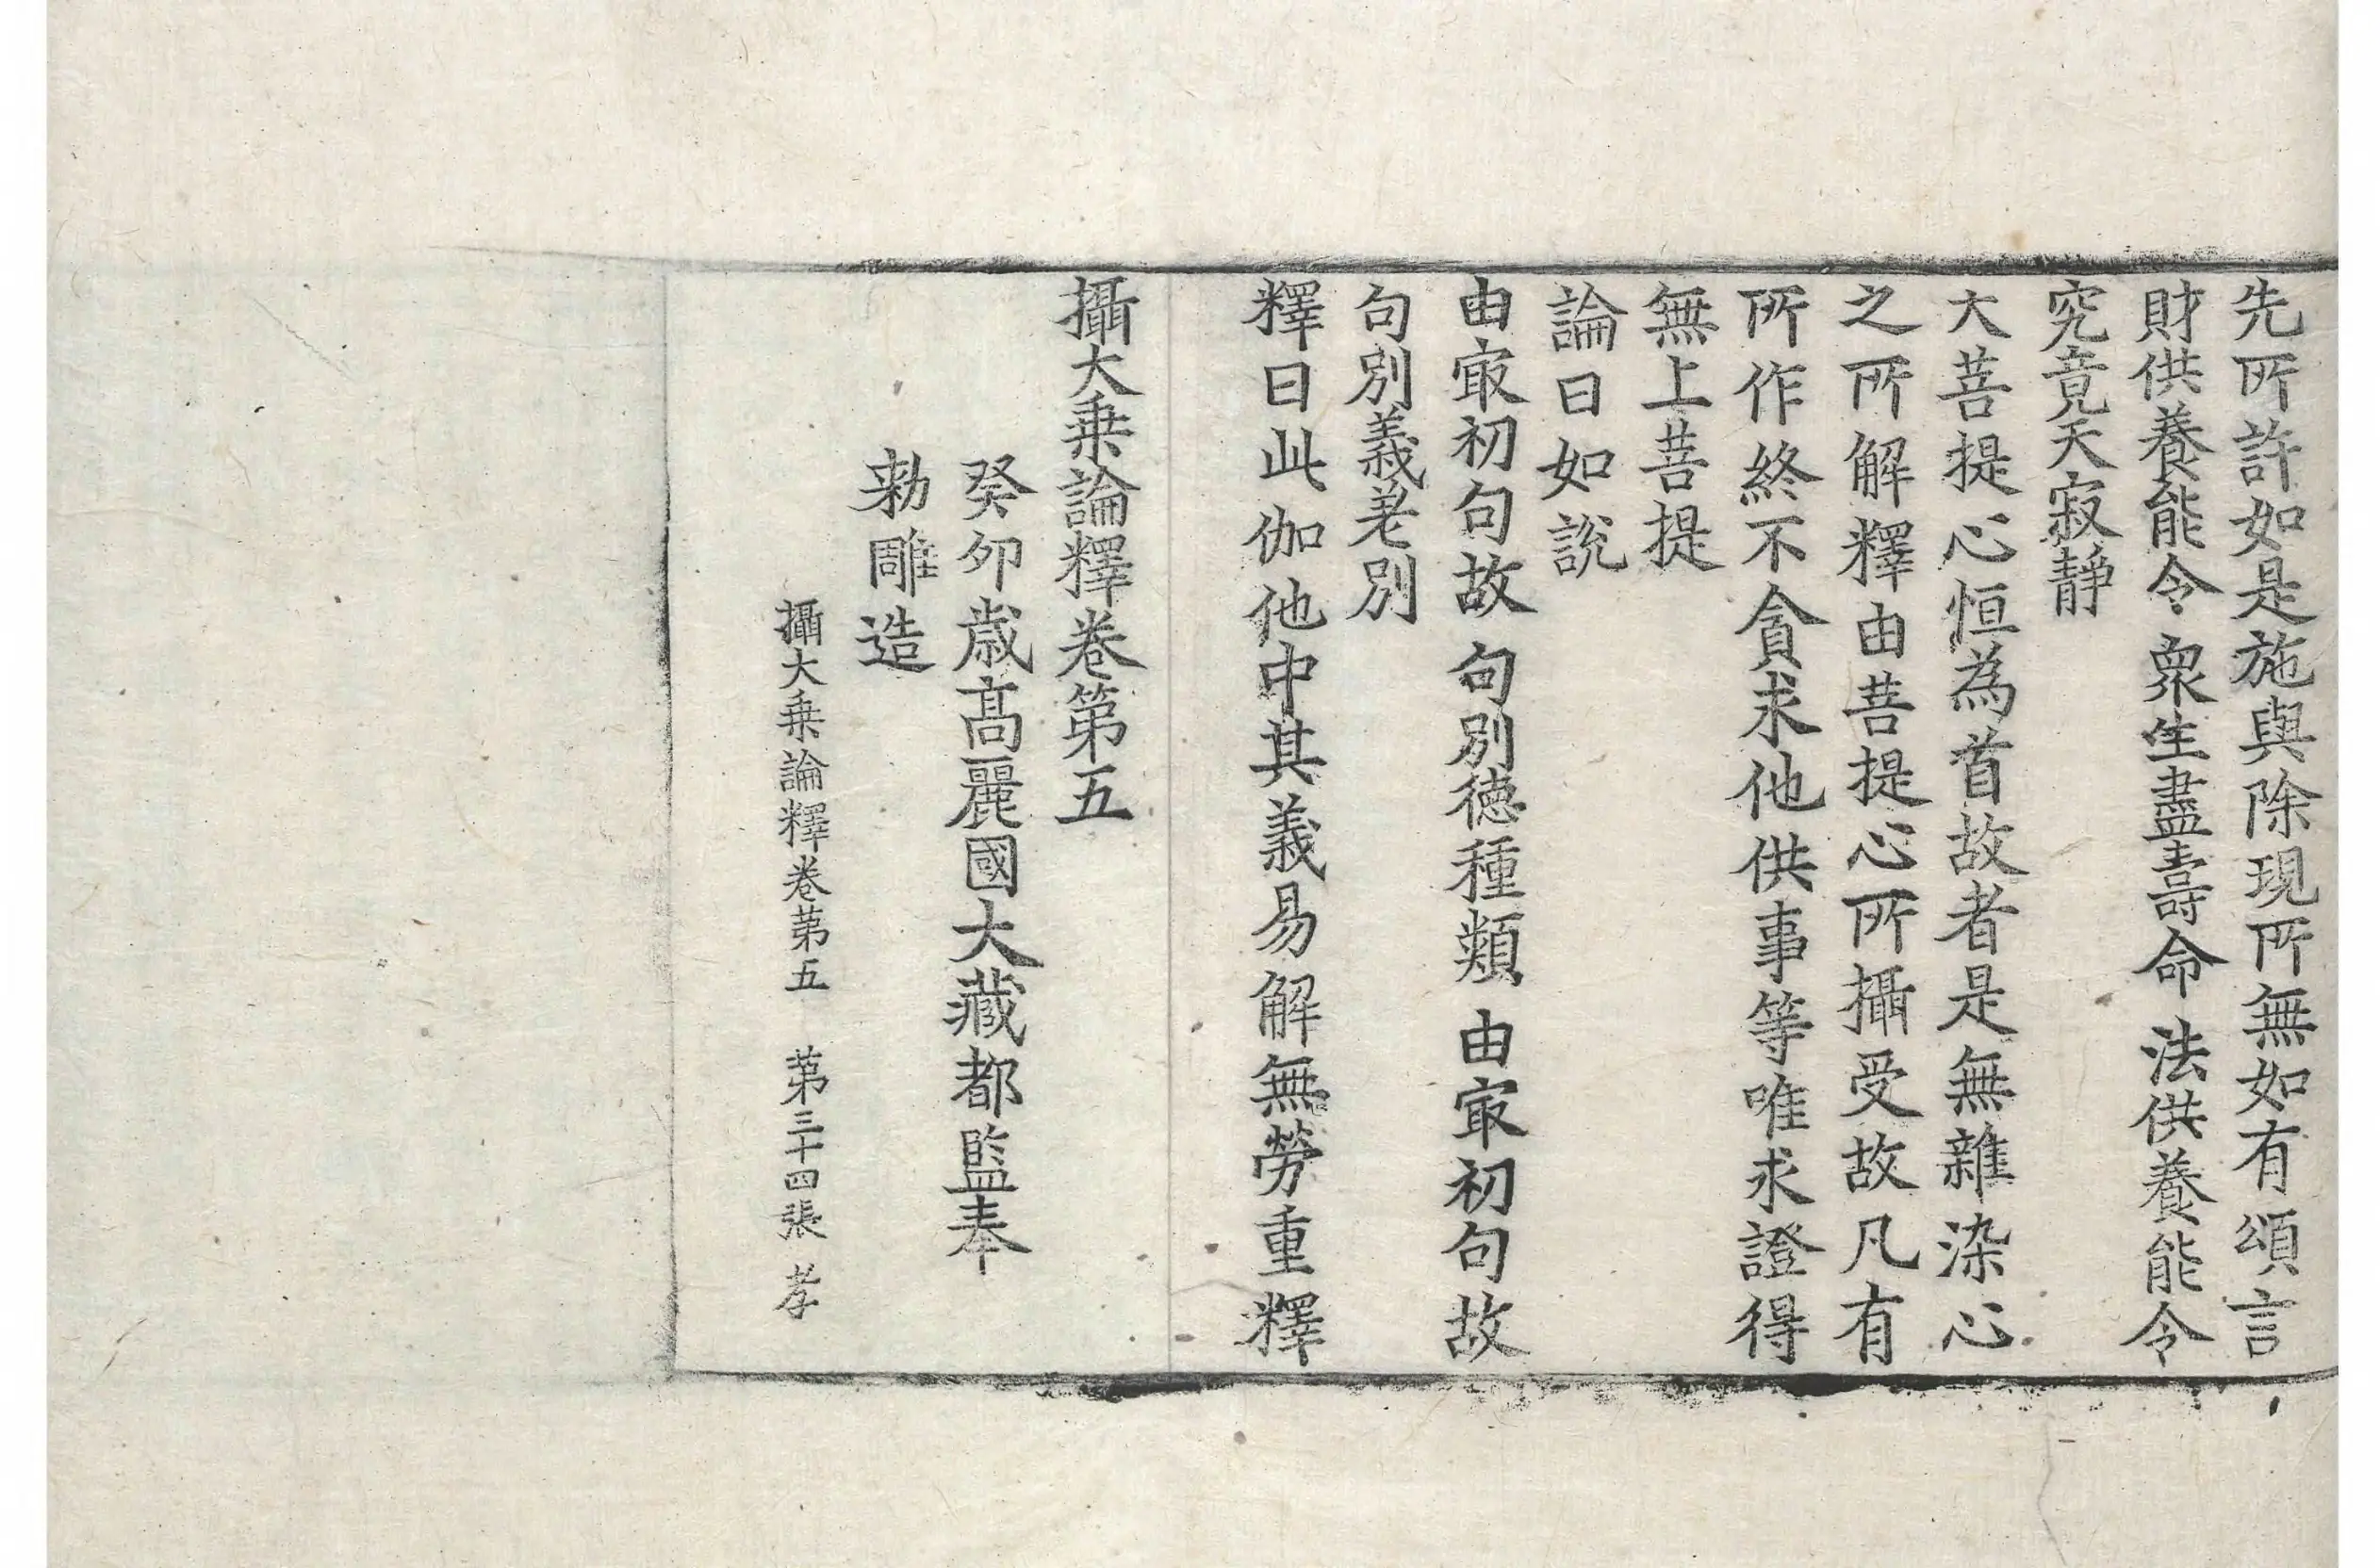 先所許如是施與除現所無如有頌言
財供養能令衆生盡壽命法供養能令
究竟天寂靜
大菩提心恒為首故者是無雜染心
之所解釋由菩提心所攝受故凡有
所作終不貪求他供事等唯求證得
無上菩提
論曰如說
由㝡初句故 句別德種類 由㝡初句故
句別義差別
釋曰此伽他中其義易解無勞重釋
攝大乗論釋卷第五
癸卯歳髙麗國大藏都監奉
勑雕造
攝大乗論釋卷苐五 苐三十四張 孝